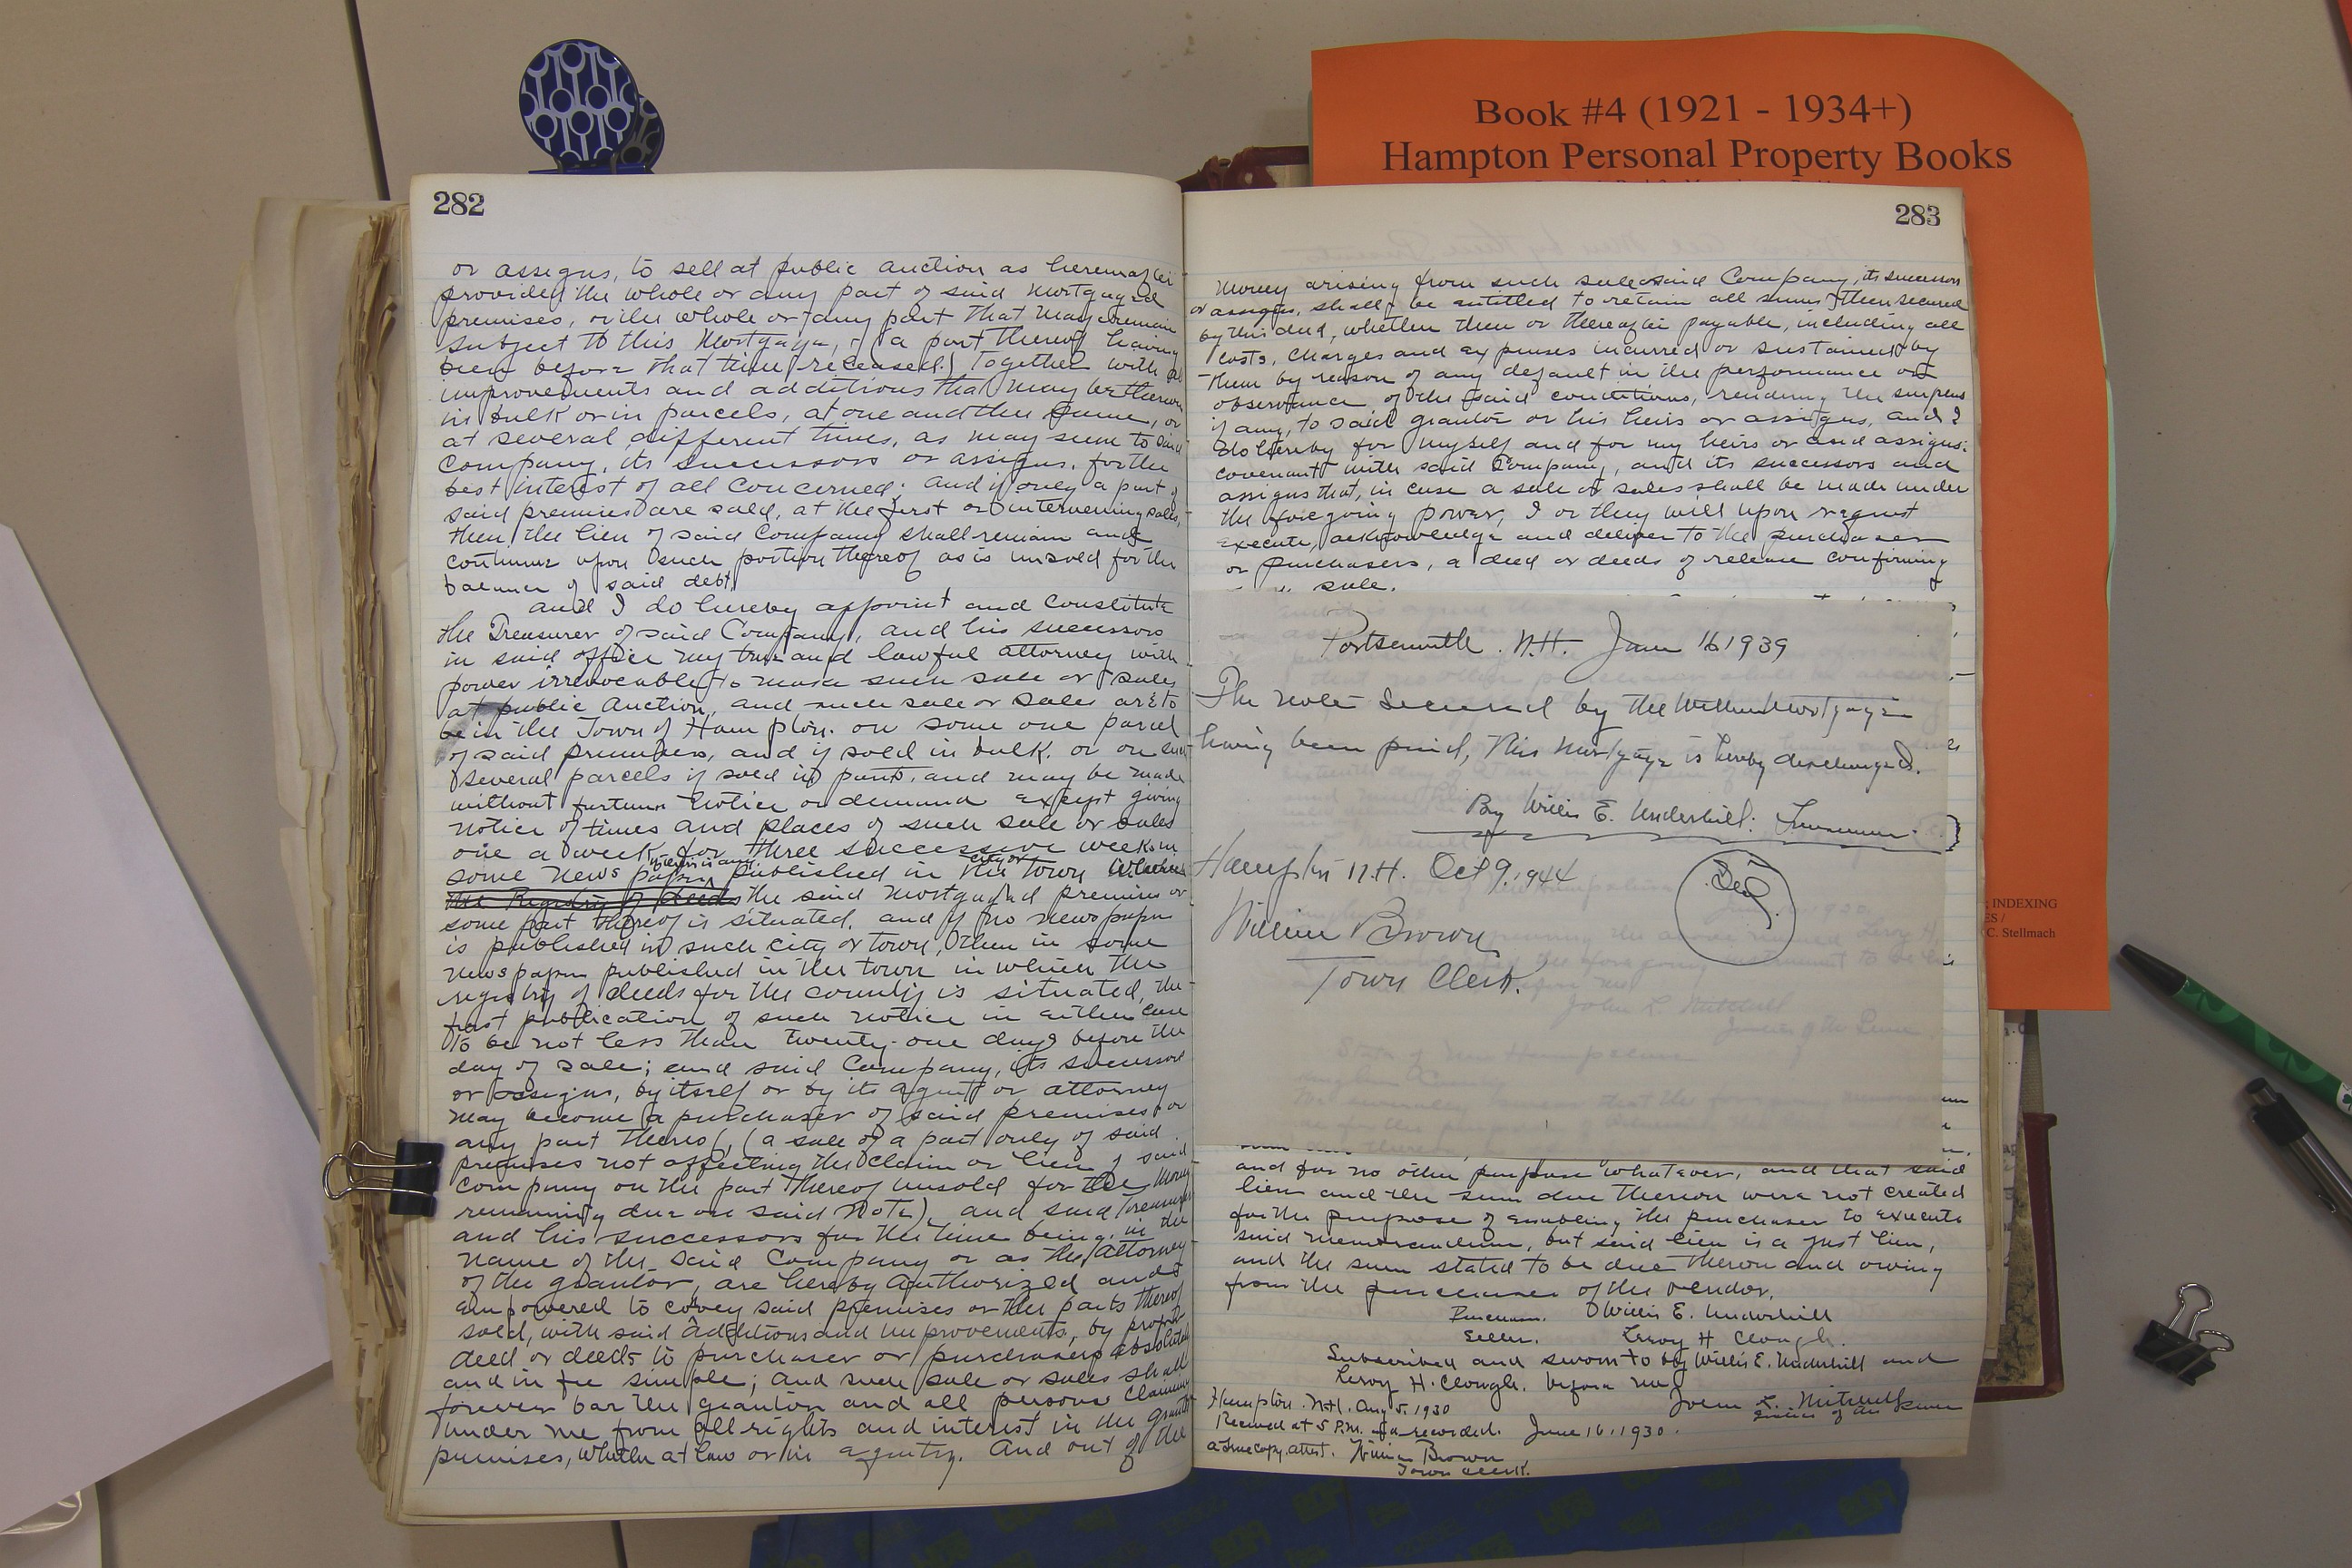 Book #4 (1921 - 1934+)
Hampton Personal Property Books
INDEXING
ES /
C. Stellmach
282
or assigns, to sell at public auction as hereinafter
provided the whole or any part of said Mortgaged
premises, or the whole or any part that may remain
subject to this Mortgage, (a part thereof having
been before that time released) together with all
improvements and additions that may be thereon
in bulk or in parcels, at one and the same, or
at several different times, as may seem to said
Company, its successors or assigns, for the
best interest of all concerned; and if only a part of
said premises are sold, at the first or intervening sales,
then the lien of said Company shall remain and
continue upon such portion thereof as is unsold for the
balance of said debt,
and I do hereby appoint and Constitute
the Treasurer of said Company, and his successors
in said office my true and lawful attorney with
power irrevocable to make such sale or sales
at public Auction, and such sale or sales are to
be in the Town of Hampton. on some one parcel
of said premises, and if sold in bulk. or on such
several parcels if sold in parts, and may be made
without further notice or demand except giving
notice of times and places of such sale or sales
one a week for three successive weeks in
some news paper, published in the city or town wherein
the Registry of deeds the said mortgaged premises or
some part thereof is situated, and if no newspaper
is published in such city or town, then in some
newspaper published in the town in which the
registry of deeds for the county is situated, the
first publication of such notice in either case
to be not less than twenty-one days before the
day of sale; and said Company, its successors
or assigns, by itself or by its agent or attorney
may become a purchaser of said premises or
any part thereof, (a sale of a part only of said
premises not affecting the claim or lien of said
company on the part thereof unsold for the money
remaining due on said note), and said Treasurer
and his successors for the time being, in the
name of the said Company or as the attorney
of the grantor, are hereby authorized and
empowered to covey said premises or the parts thereof
sold, with said additions and improvements, by proper
deed or deeds to purchaser or purchasers absolutely
and in fee simple; and such sale or sales shall
forever bar the grantor and all persons claiming
under me from all rights and interest in the granted
premises, whether at law or in equity. And out of the
283
money arising from such sale said Company, its successors
or assigns, shall be entitled to retain all sums then secured
by this deed, whether then or thereafter payable, including all
costs, charges and expenses incurred or sustained by
them by reason of any default in the performance or
observance of the said conditions, rendering the surplus
if any, to said grantor or his heirs or assigns, and I
do hereby for myself and for my heirs or and assigns:
covenant with said Company, and its successors and
assigns that, in case a sale or sales shall be made under
the foregoing power, I or they will upon request
execute, acknowledge and deliver to the purchaser
or purchasers, a deed or deeds of release confirming
sale.
Portsmouth. N.H. June 16 1939
The note secured by the within mortgage
having been paid, this mortgage is hereby discharged.
By Willis E. Underhill: Treasurer.
Hampton N.H. Oct 9, 1944
William Brown
Town Clerk.
and for no other purpose whatever, and that said
lien and the sum due thereon were not created
for the purpose of enabling the purchaser to execute
said memorandum, but said lien is a just lien,
and the sum stated to be due thereon and owing
from the purchaser of the vendor.
Purchaser. Willis E. Underhill
Seller. Leroy H. Clough.
Subscribed and sworn to by Willis E. Underhill and
Leroy H. Clough. before me
John L. Mitchell
Justice of the Peace
Hampton. N.H. Aug 5, 1930
Received at 5 P.M. & recorded. June 16, 1930.
a true copy, attest. William Brown
Town Clerk.